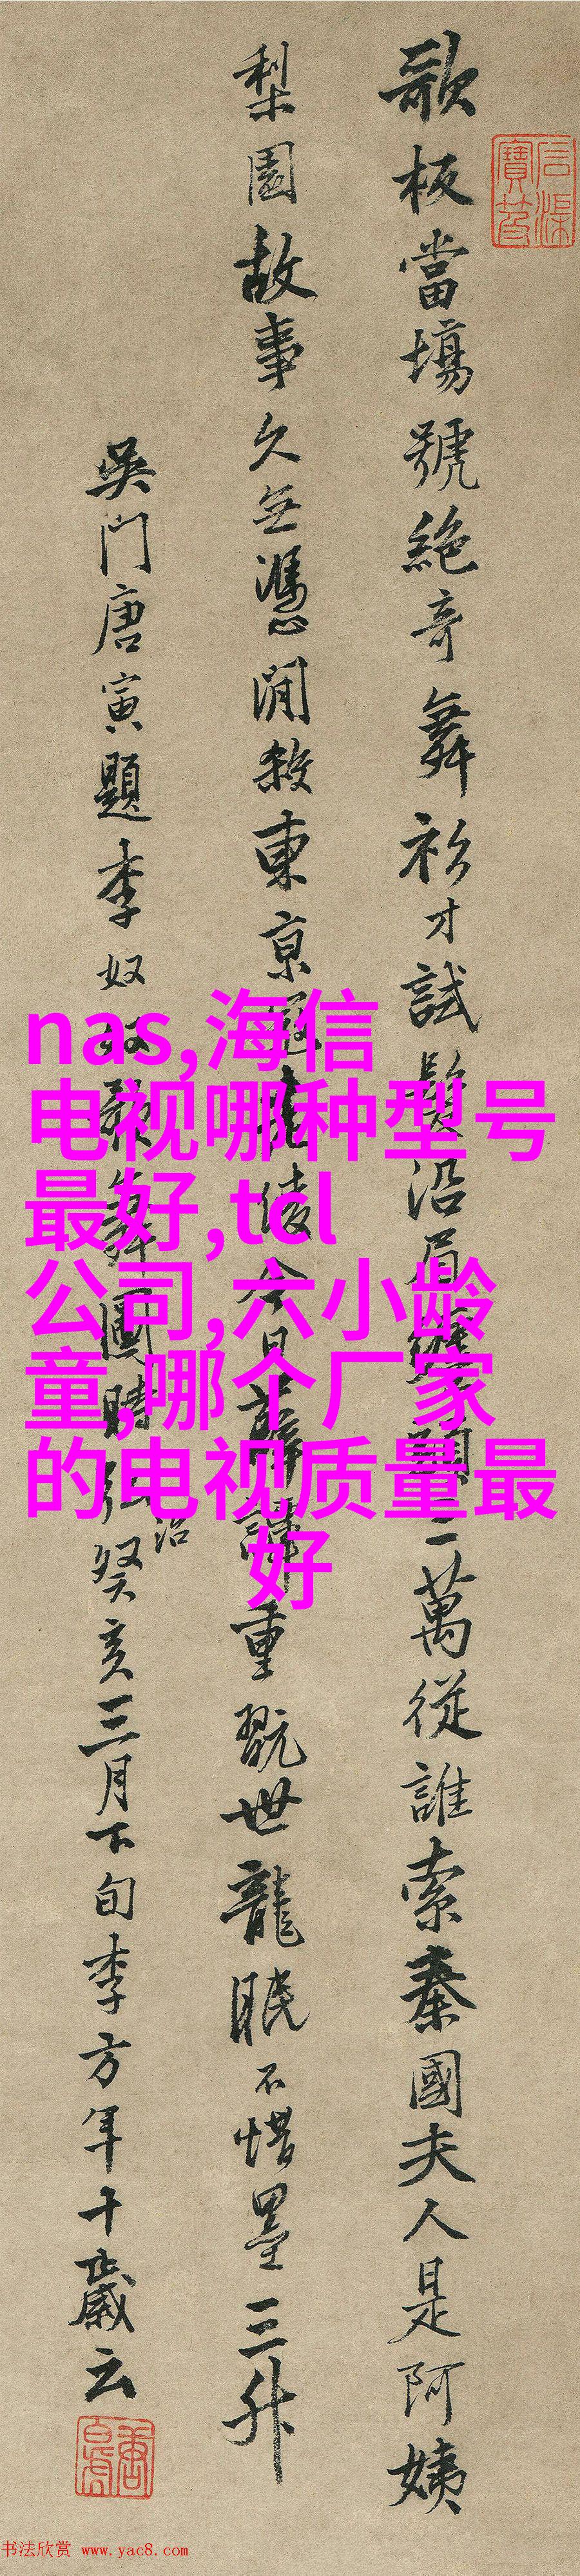 歌板當場號絕奇舞衫才試髮沿眉纏頭三萬從誰索秦國夫人是阿姨
梨園故事久無憑閒殺東京冠善伎今日薛譚重翫世龍眠不惜墨三升
吳門唐寅題李奴奴歌舞圖時弘治癸亥三月下旬李方年十歲云
nas,海信
电视哪种型号
最好,tcl
公司,六小龄
童,哪个厂家
的电视质量最
好
书法欣赏 www.yac8.com